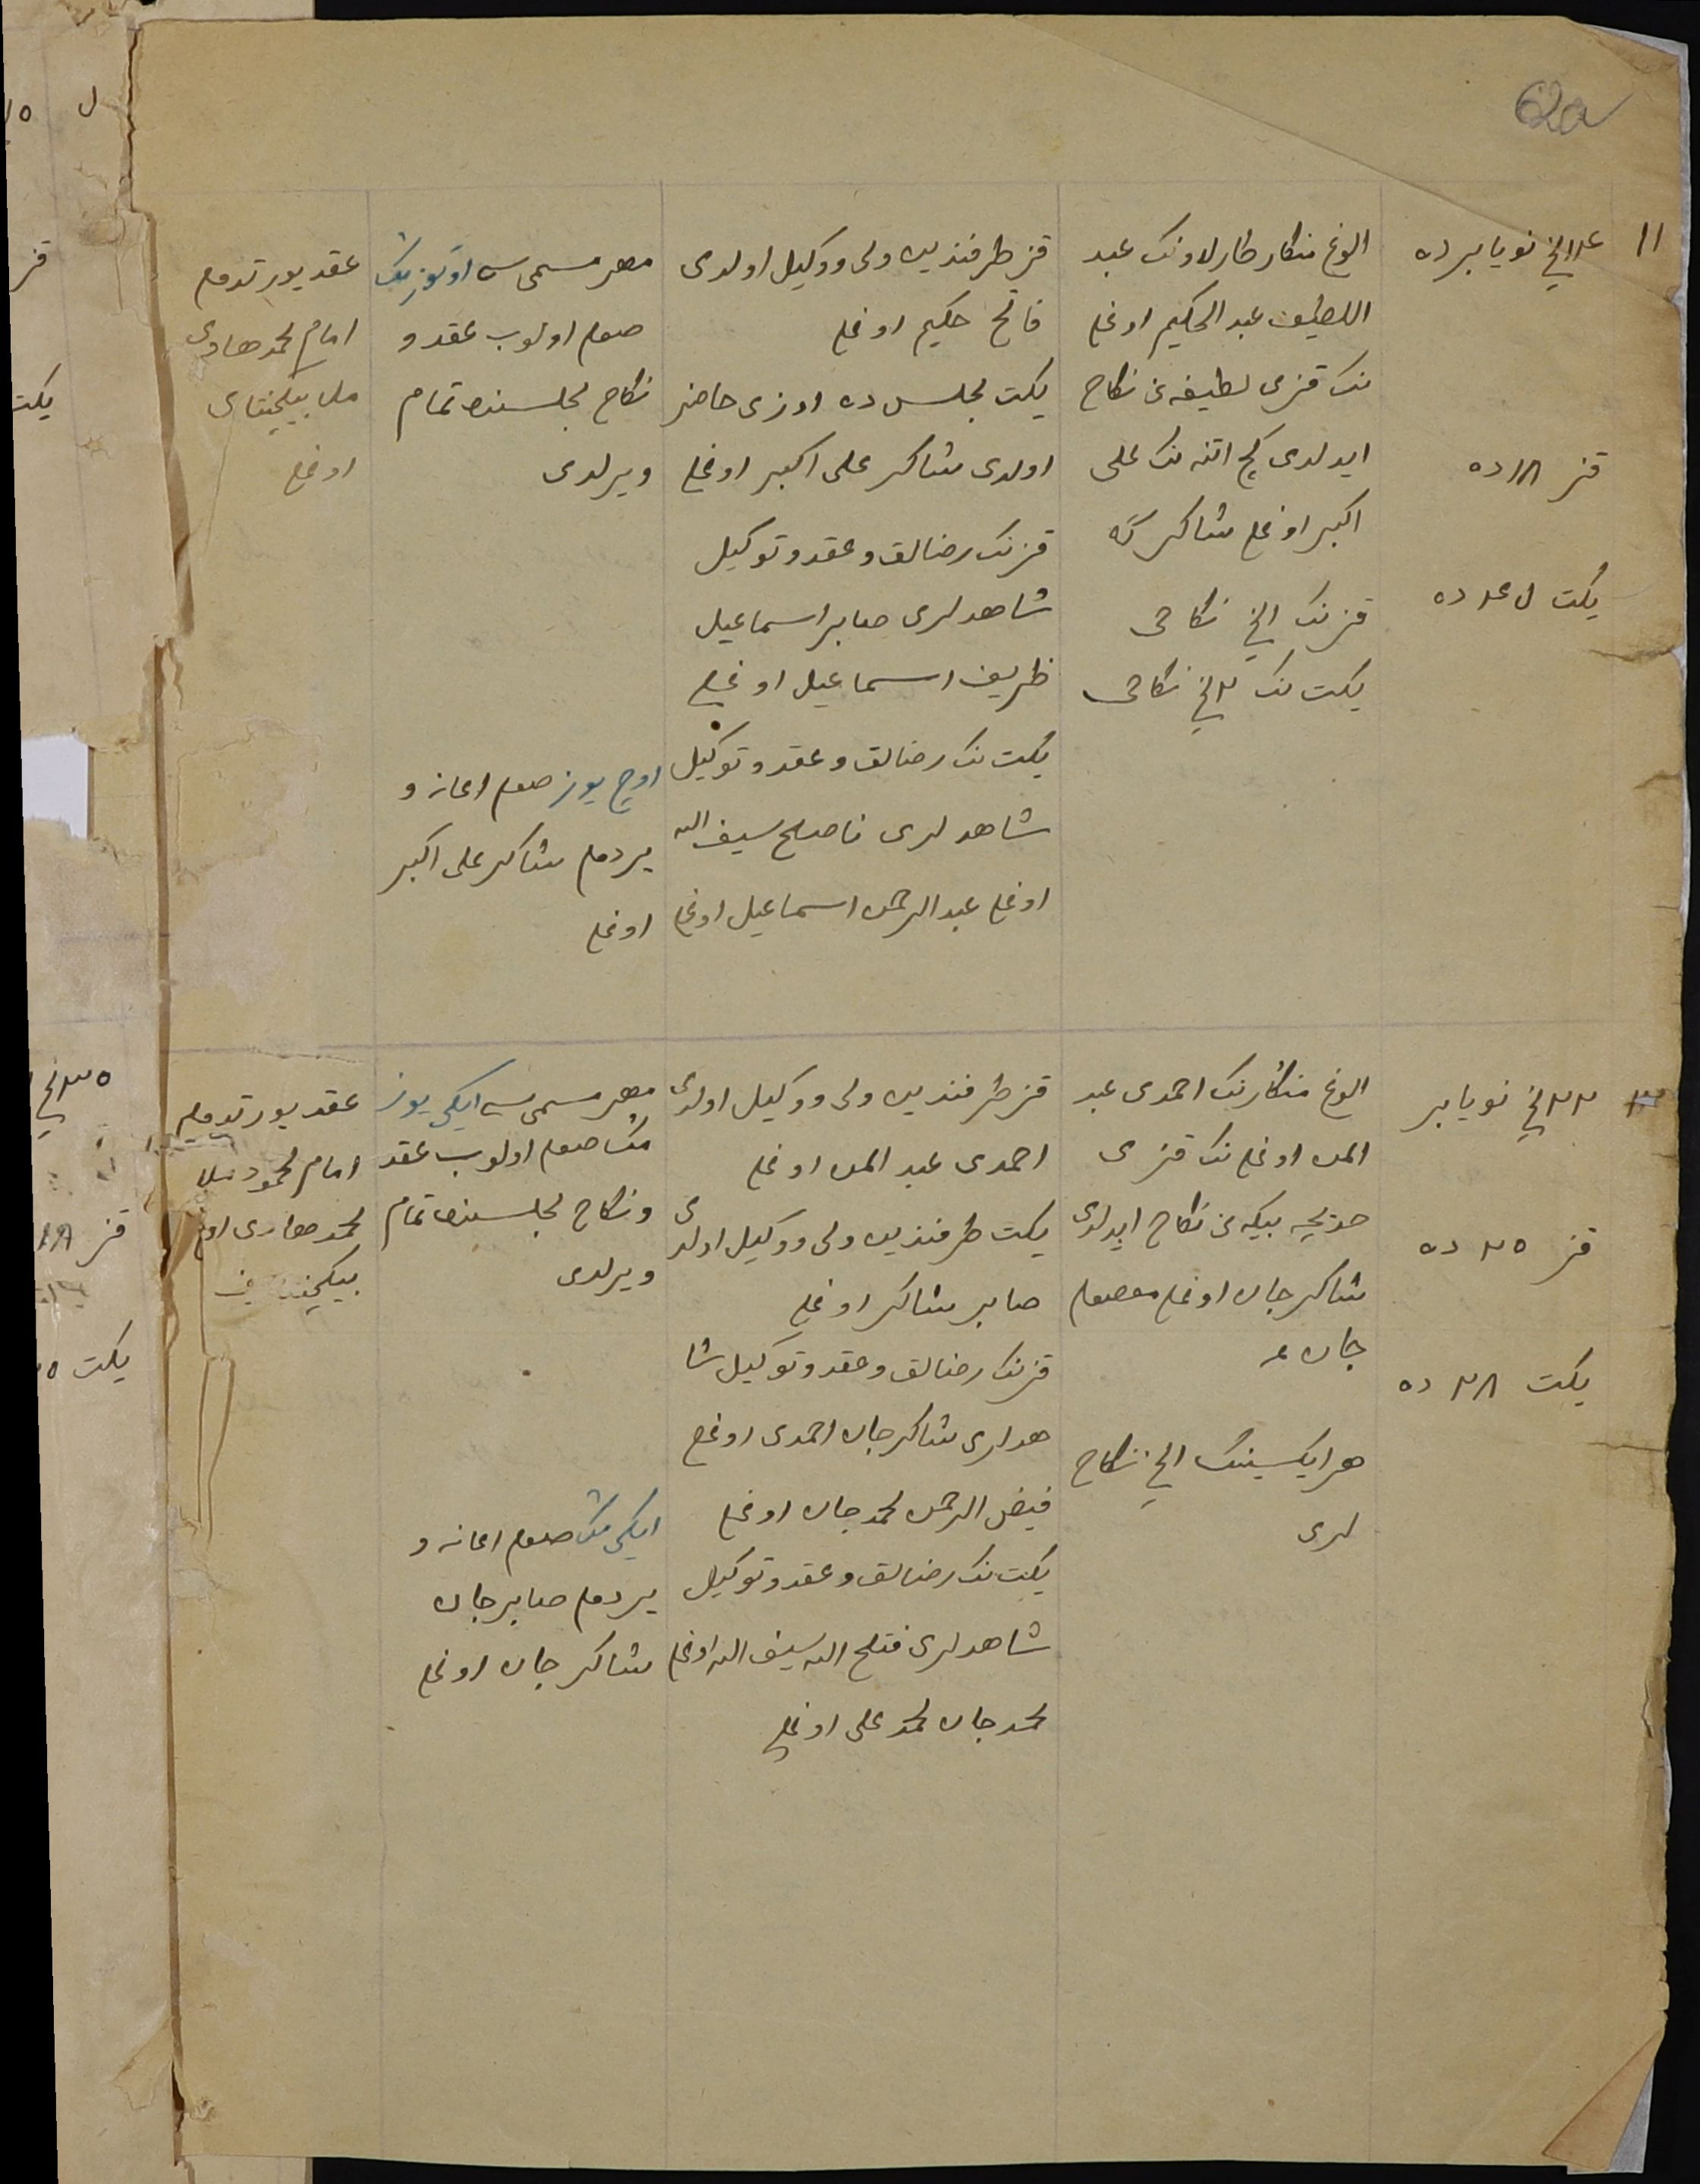 62a
١١
١٤نچی نویابرده
قز ١٨ ده
یکت ٢٤ ده
الوغ منکار طارلاونک عبد
اللطیف عبد الحکیم اوغلی
نک قزی لطیفه نی نکاح
ایدلدی کچ اتنه نک علی
اکبر اوغلی شاکر گه
قزنک ١نچی نکاحی
یکت نک ٢نچی نکاحی
قز طرفندین ولی ووکیل اولدی
فاتح حکیم اوغلی
یکت مجلس ده اوزی حاضر
اولدی شاکر علی اکبر اوغلی
قزنک رضالق وعقد وتوکیل
شاهدلری صابر اسماعیل
ظریف اسماعیل اوغلی
یکت نک رضالق وعقد وتوکیل
شاهدلری سیف الله
اوغلی عبد الرحمن اسماعیل اوغلی
مهر مسمی سی اوتوز مک
صوم اولوب عقد و
نکاح مجلسنده تمام
ویرلدی
اوچ یوز صوم اعانه و
یردم شاکر علی اکبر
اوغلی
عقد یورتدم
امام محمد هادی
ملا
اوغلی
٢٢نچی نویابر
قز ٢٥ ده
یکت ٢٨ ده
الوغ منکارنک احمدی عبد
المن اوغلی نک قزی
خدیجه بیکه نی نکاح ایدلدی
شاکرجان اوغلی معصوم
جان غه
هر ایکسینک ١نچی نکاح
لری
قز طرفندین ولی ووکیل اولدی
احمدی عبد المن اوغلی
یکت طرفندین ولی ووکیل اولدی
صابر شاکر اوغلی
قزنک رضالق وعقد وتوکیل شا
هدلری شاکرجان احمدی اوغلی
فیض الرحمن محمدجان اوغلی
یکت نک رضالق وعقد وتوکیل
شاهدلری فتح الله سیف الله اوغلی
محمدجان محمد علی اوغلی
مهر مسمی سی ایکی یوز
مک صوم اولوب عقد
ونکاح مجلسنده تمام
ویرلدی
ایکی مک صوم اعانه و
یردم صابرجان
شاکرجان اوغلی
عقد یورتدم
امام محمود ملا
محمد هادی